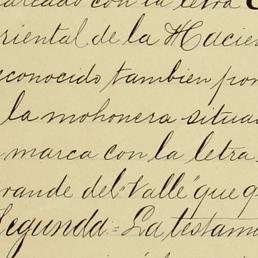 marcado con la letra
riental de la Hacien
econocido tambien por
la mohonera situad
marca con la letra
rande del "Valle" que q
Segunda = La testam